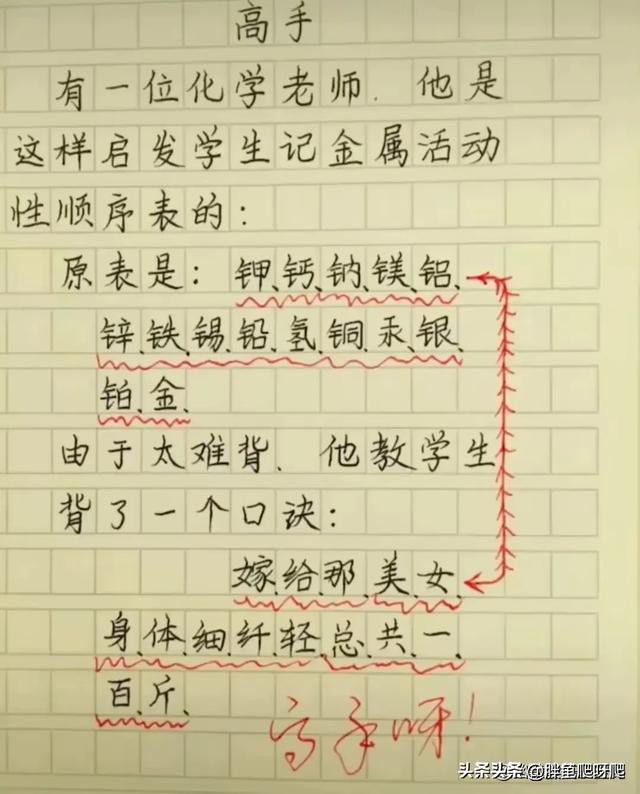 高手
有一位化学老师.他是
这样启发学生记金属活动
性顺序表的:
原表是:钾、钙、钠、镁、铝、
锌、铁、锡、铅、氢、铜、汞、银、
铂、金、
由于太难背、他教学生
背了一个口诀:
嫁、给、那、美、女、
身、体、细、纤、轻、总、共、一、
百、斤、
高手呀!
头条头条@胖鱼爬呀爬